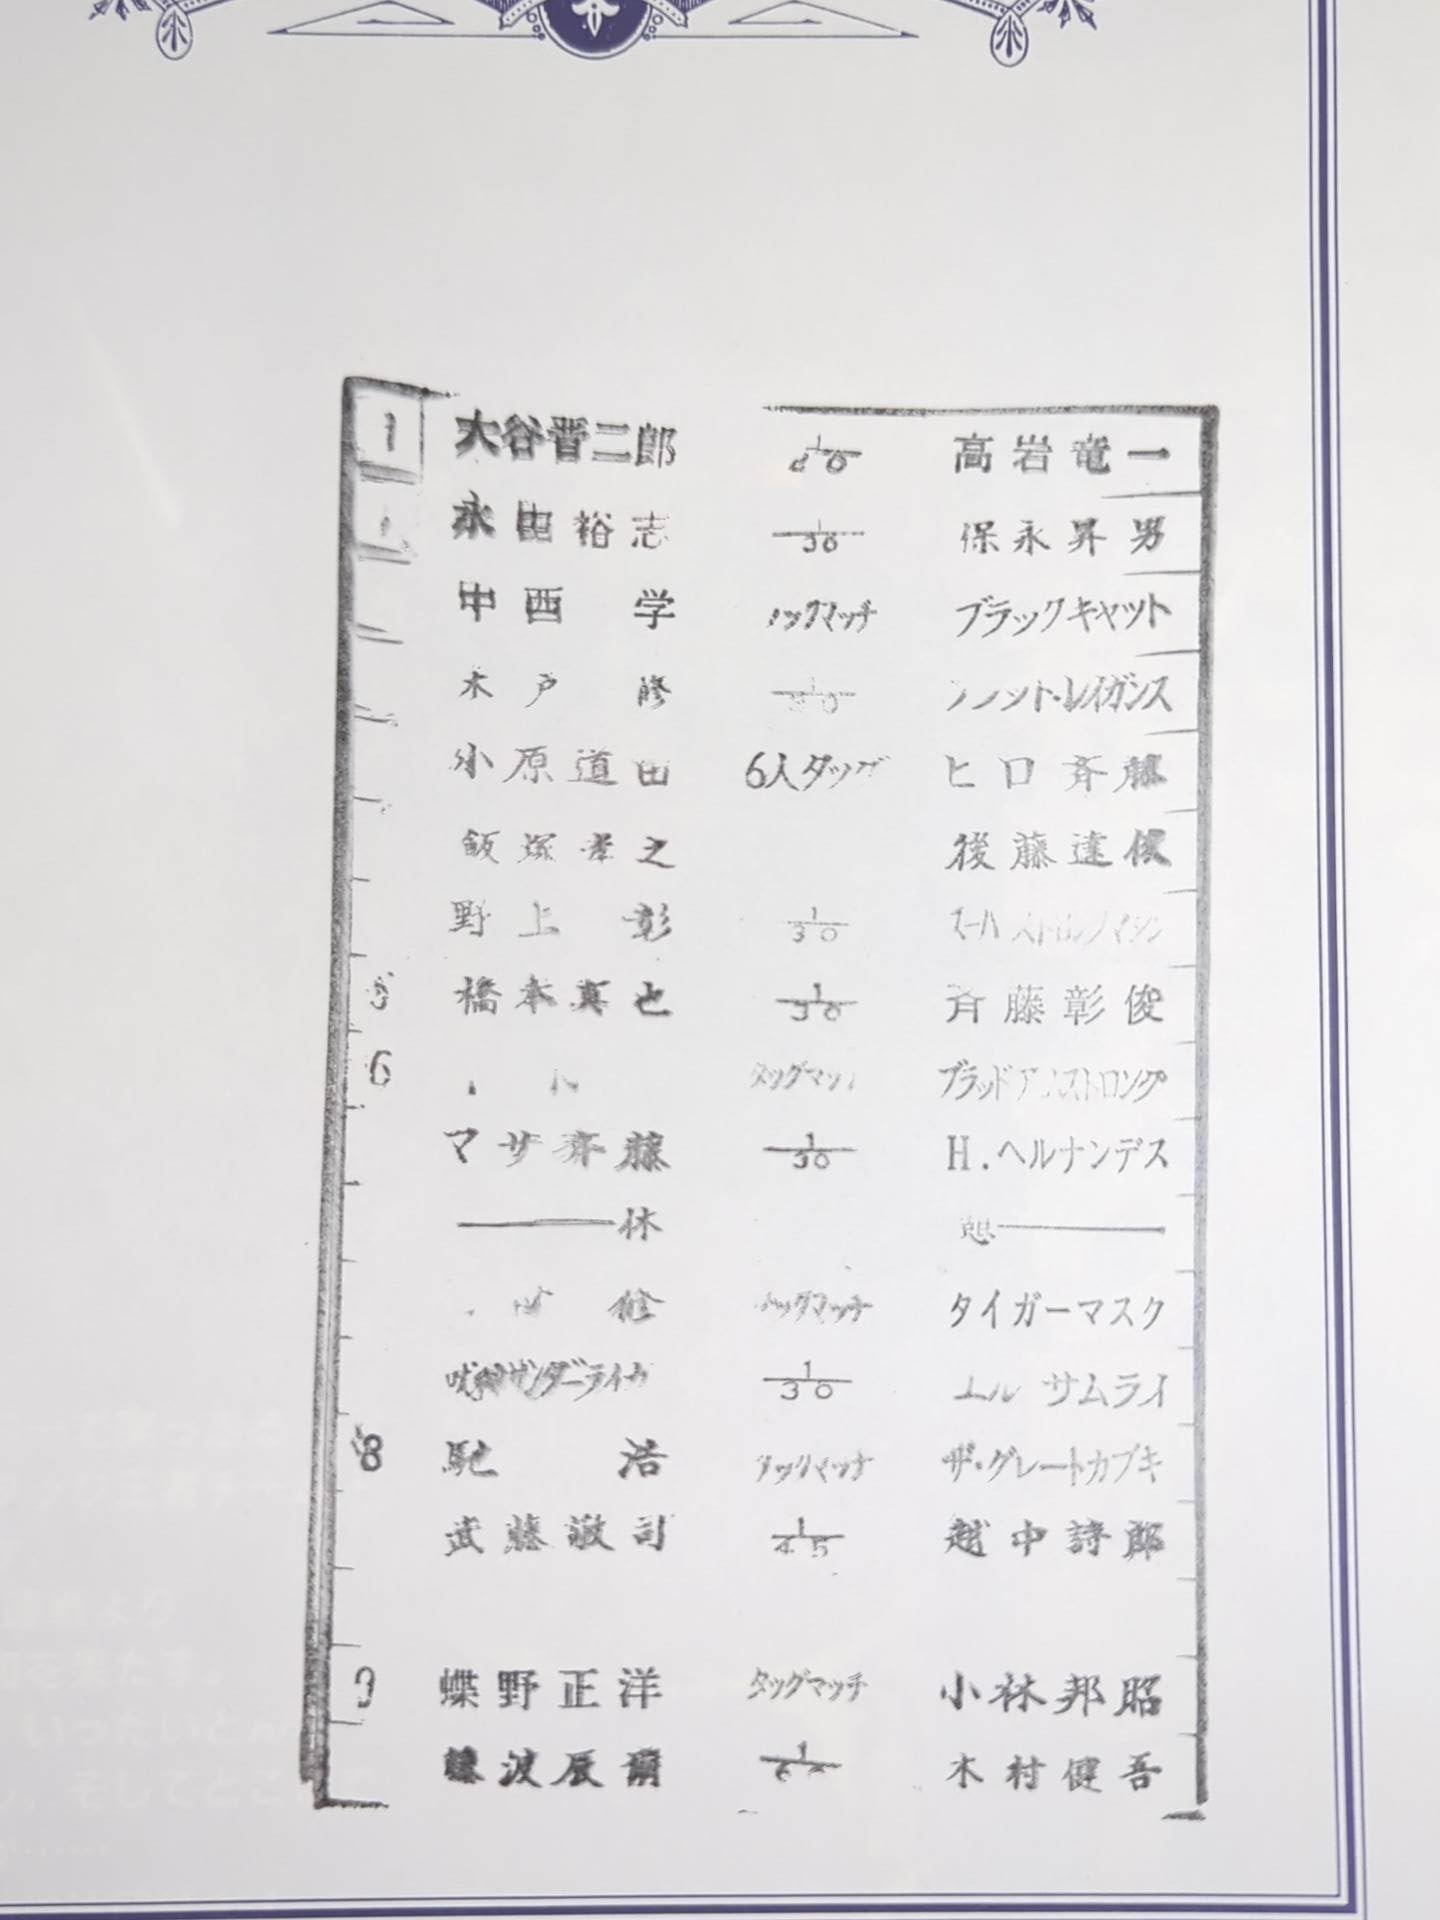 1 大谷晋二郎 1/20 高岩竜一
永田裕志 1/30 保永昇男
中西 学 タッグマッチ ブラックキャット
木戸 修 レイガンス
小原道由 6人タッグ ヒロ斉藤
飯塚孝之 後藤達俊
野上 彰 1/30 スーパーストロングマシン
5 橋本真也 1/30 斉藤彰俊
6 タッグマッチ ブラッドアームストロング
マサ斉藤 1/30 H.ヘルナンデス
休 憩
タッグマッチ タイガーマスク
サンダーライガー 1/30 エル サムライ
8 馳 浩 タッグマッチ ザ・グレートカブキ
武藤敬司 1/45 越中詩郎
9 蝶野正洋 タッグマッチ 小林邦昭
藤波辰爾 木村健吾